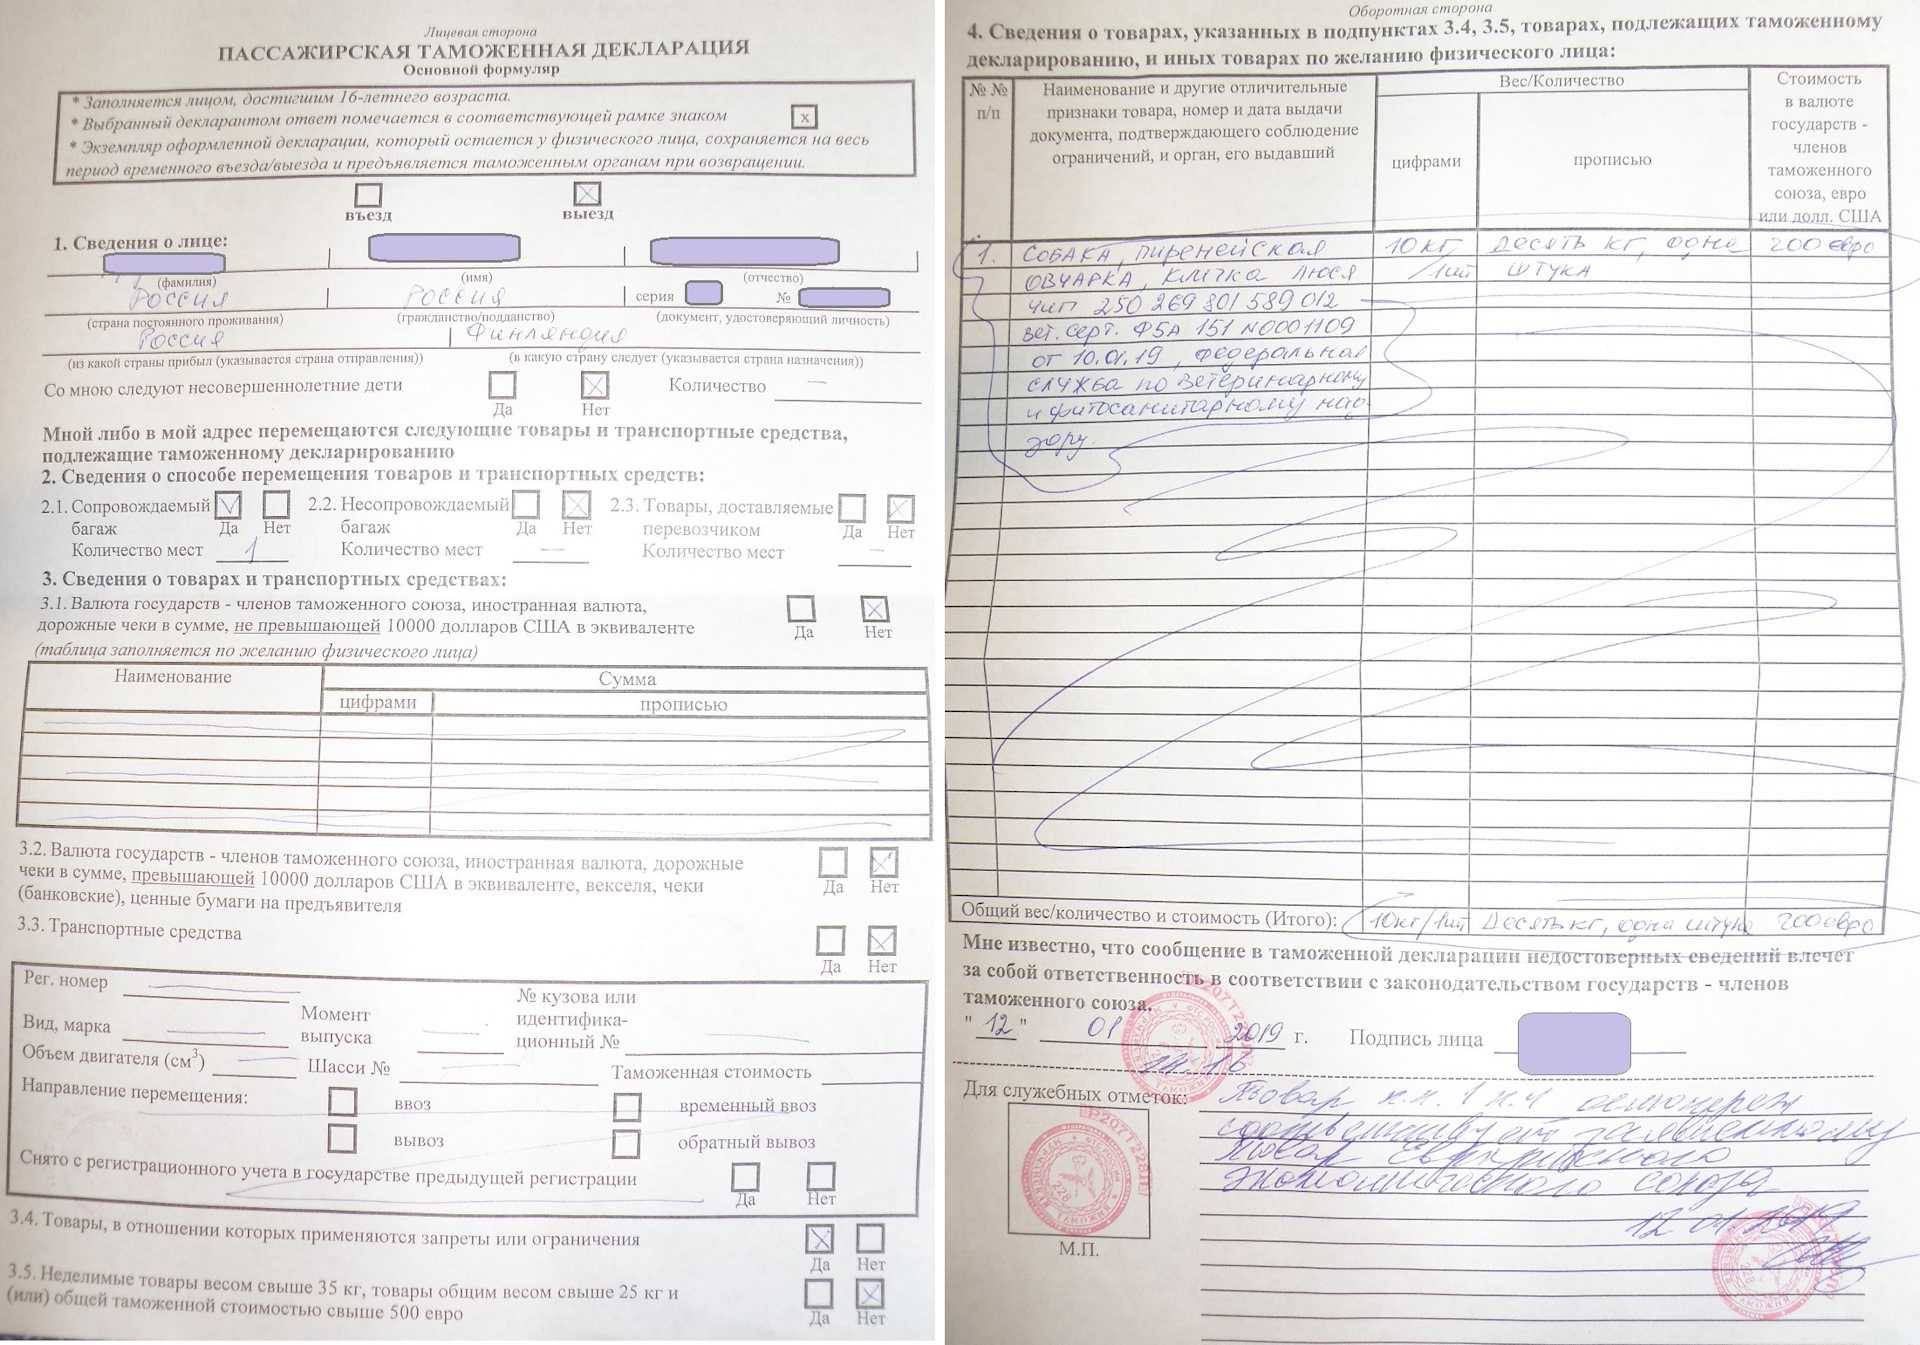 Лицевая сторона
ПАССАЖИРСКАЯ ТАМОЖЕННАЯ ДЕКЛАРАЦИЯ
Основной формуляр
* Заполняется лицом, достигшим 16-летнего возраста.
* Выбранный декларантом ответ помечается в соответствующей рамке знаком x
* Экземпляр оформленной декларации, который остается у физического лица, сохраняется на весь
период временного въезда/выезда и предъявляется таможенным органам при возвращении.
въезд выезд
1. Сведения о лице:
(фамилия) (имя) (отчество)
Россия Россия серия №
(страна постоянного проживания) (гражданство/подданство) (документ, удостоверяющий личность)
Россия Финляндия
(из какой страны прибыл (указывается страна отправления)) (в какую страну следует (указывается страна назначения))
Со мною следуют несовершеннолетние дети Да Нет Количество —
Мной либо в мой адрес перемещаются следующие товары и транспортные средства,
подлежащие таможенному декларированию
2. Сведения о способе перемещения товаров и транспортных средств:
2.1. Сопровождаемый 2.2. Несопровождаемый 2.3. Товары, доставляемые
багаж Да Нет багаж Да Нет перевозчиком Да Нет
Количество мест 1 Количество мест — Количество мест —
3. Сведения о товарах и транспортных средствах:
3.1. Валюта государств - членов таможенного союза, иностранная валюта,
дорожные чеки в сумме, не превышающей 10000 долларов США в эквиваленте Да Нет
(таблица заполняется по желанию физического лица)
Наименование Сумма
цифрами прописью
3.2. Валюта государств - членов таможенного союза, иностранная валюта, дорожные
чеки в сумме, превышающей 10000 долларов США в эквиваленте, векселя, чеки Да Нет
(банковские), ценные бумаги на предъявителя
3.3. Транспортные средства
Да Нет
Рег. номер № кузова или
Вид, марка Момент идентифика-
выпуска ционный №
Объем двигателя (см3) Шасси № Таможенная стоимость
Направление перемещения: ввоз временный ввоз
вывоз обратный вывоз
Снято с регистрационного учета в государстве предыдущей регистрации
Да Нет
3.4. Товары, в отношении которых применяются запреты или ограничения
Да Нет
3.5. Неделимые товары весом свыше 35 кг, товары общим весом свыше 25 кг и
(или) общей таможенной стоимостью свыше 500 евро Да Нет
Оборотная сторона
4. Сведения о товарах, указанных в подпунктах 3.4, 3.5, товарах, подлежащих таможенному
декларированию, и иных товарах по желанию физического лица:
№ № п/п
Наименование и другие отличительные
признаки товара, номер и дата выдачи
документа, подтверждающего соблюдение
ограничений, и орган, его выдавший
Вес/Количество
цифрами прописью
Стоимость
в валюте
государств -
членов
таможенного
союза, евро
или долл. США
1. Собака, пиренейская 10 кг десять кг, одна 200 евро
овчарка, кличка Люся /1шт штука
чип 250 269 801 589 012
вет. серт. Ф5А 151 N0001109
от 10.01.19, Федеральная
служба по ветеринарному
и фитосанитарному над-
зору.
Общий вес/количество и стоимость (Итого): 10кг/1шт Десять кг, одна штука 200 евро
Мне известно, что сообщение в таможенной декларации недостоверных сведений влечет
за собой ответственность в соответствии с законодательством государств - членов
таможенного союза.
" 12 " 01 2019 г. Подпись лица
Для служебных отметок: Товар п.п. 1 п.4
Товар Евразийского
экономического союза
12.01.2019
М.П.